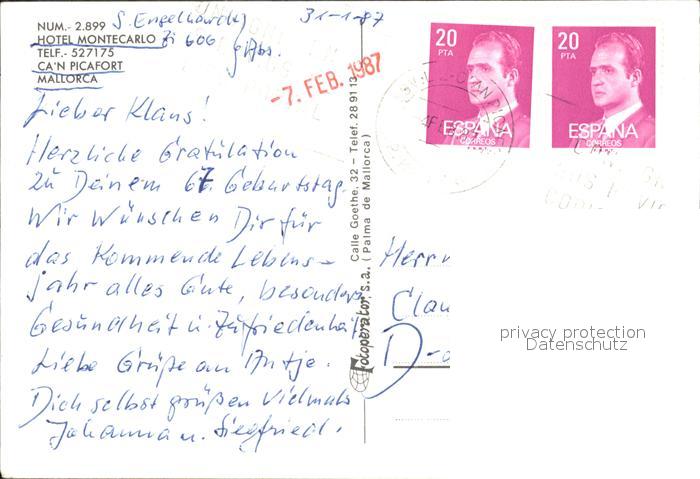 NUM.- 2.899 S. Engelhardt 31-1-87
HOTEL MONTECARLO Zi 606
TELF.- 527175
CA'N PICAFORT
MALLORCA
-7. FEB. 1987
20
PTA
ESPAÑA
CORREOS
20
PTA
ESPAÑA
CORREOS
Lieber Klaus!
Herzliche Gratulation
zu Deinem 67. Geburtstag.
Wir wünschen Dir für
das kommende Lebens-
jahr alles Gute, besonders
Gesundheit u. Zufriedenheit
Liebe Grüße an Antje.
Dich selbst grüßen vielmals
Johanna u. Siegfried.
Fotoperator, s.a. Calle Goethe, 32 – Telef. 28 91 13
(Palma de Mallorca)
Herrn
Clau
D-
privacy protection
Datenschutz